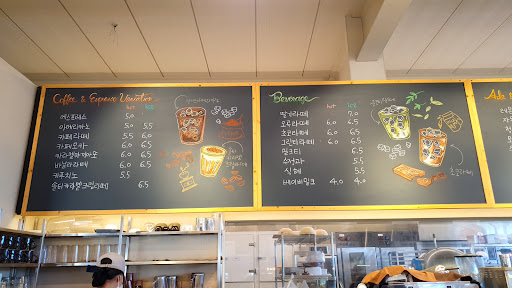 Coffee & Espresso Variation HOT ICE
에스프레소 5.0
아메리카노 5.0 5.5
카페라떼 5.5 6.0
카페모카 6.0 6.5
카라멜마끼아또 6.0 6.5
바닐라라떼 6.0 6.5
카푸치노 5.5
솔티카라멜크림라떼 6.5
Beverage HOT ICE
딸기라떼 7.0
오곡라떼 6.0 6.5
초코라떼 6.0 6.5
그린티라떼 6.0 6.5
밀크티 6.5
수정과 5.5
식혜 5.5
베이비밀크 4.0 4.0
초코라떼
Ade